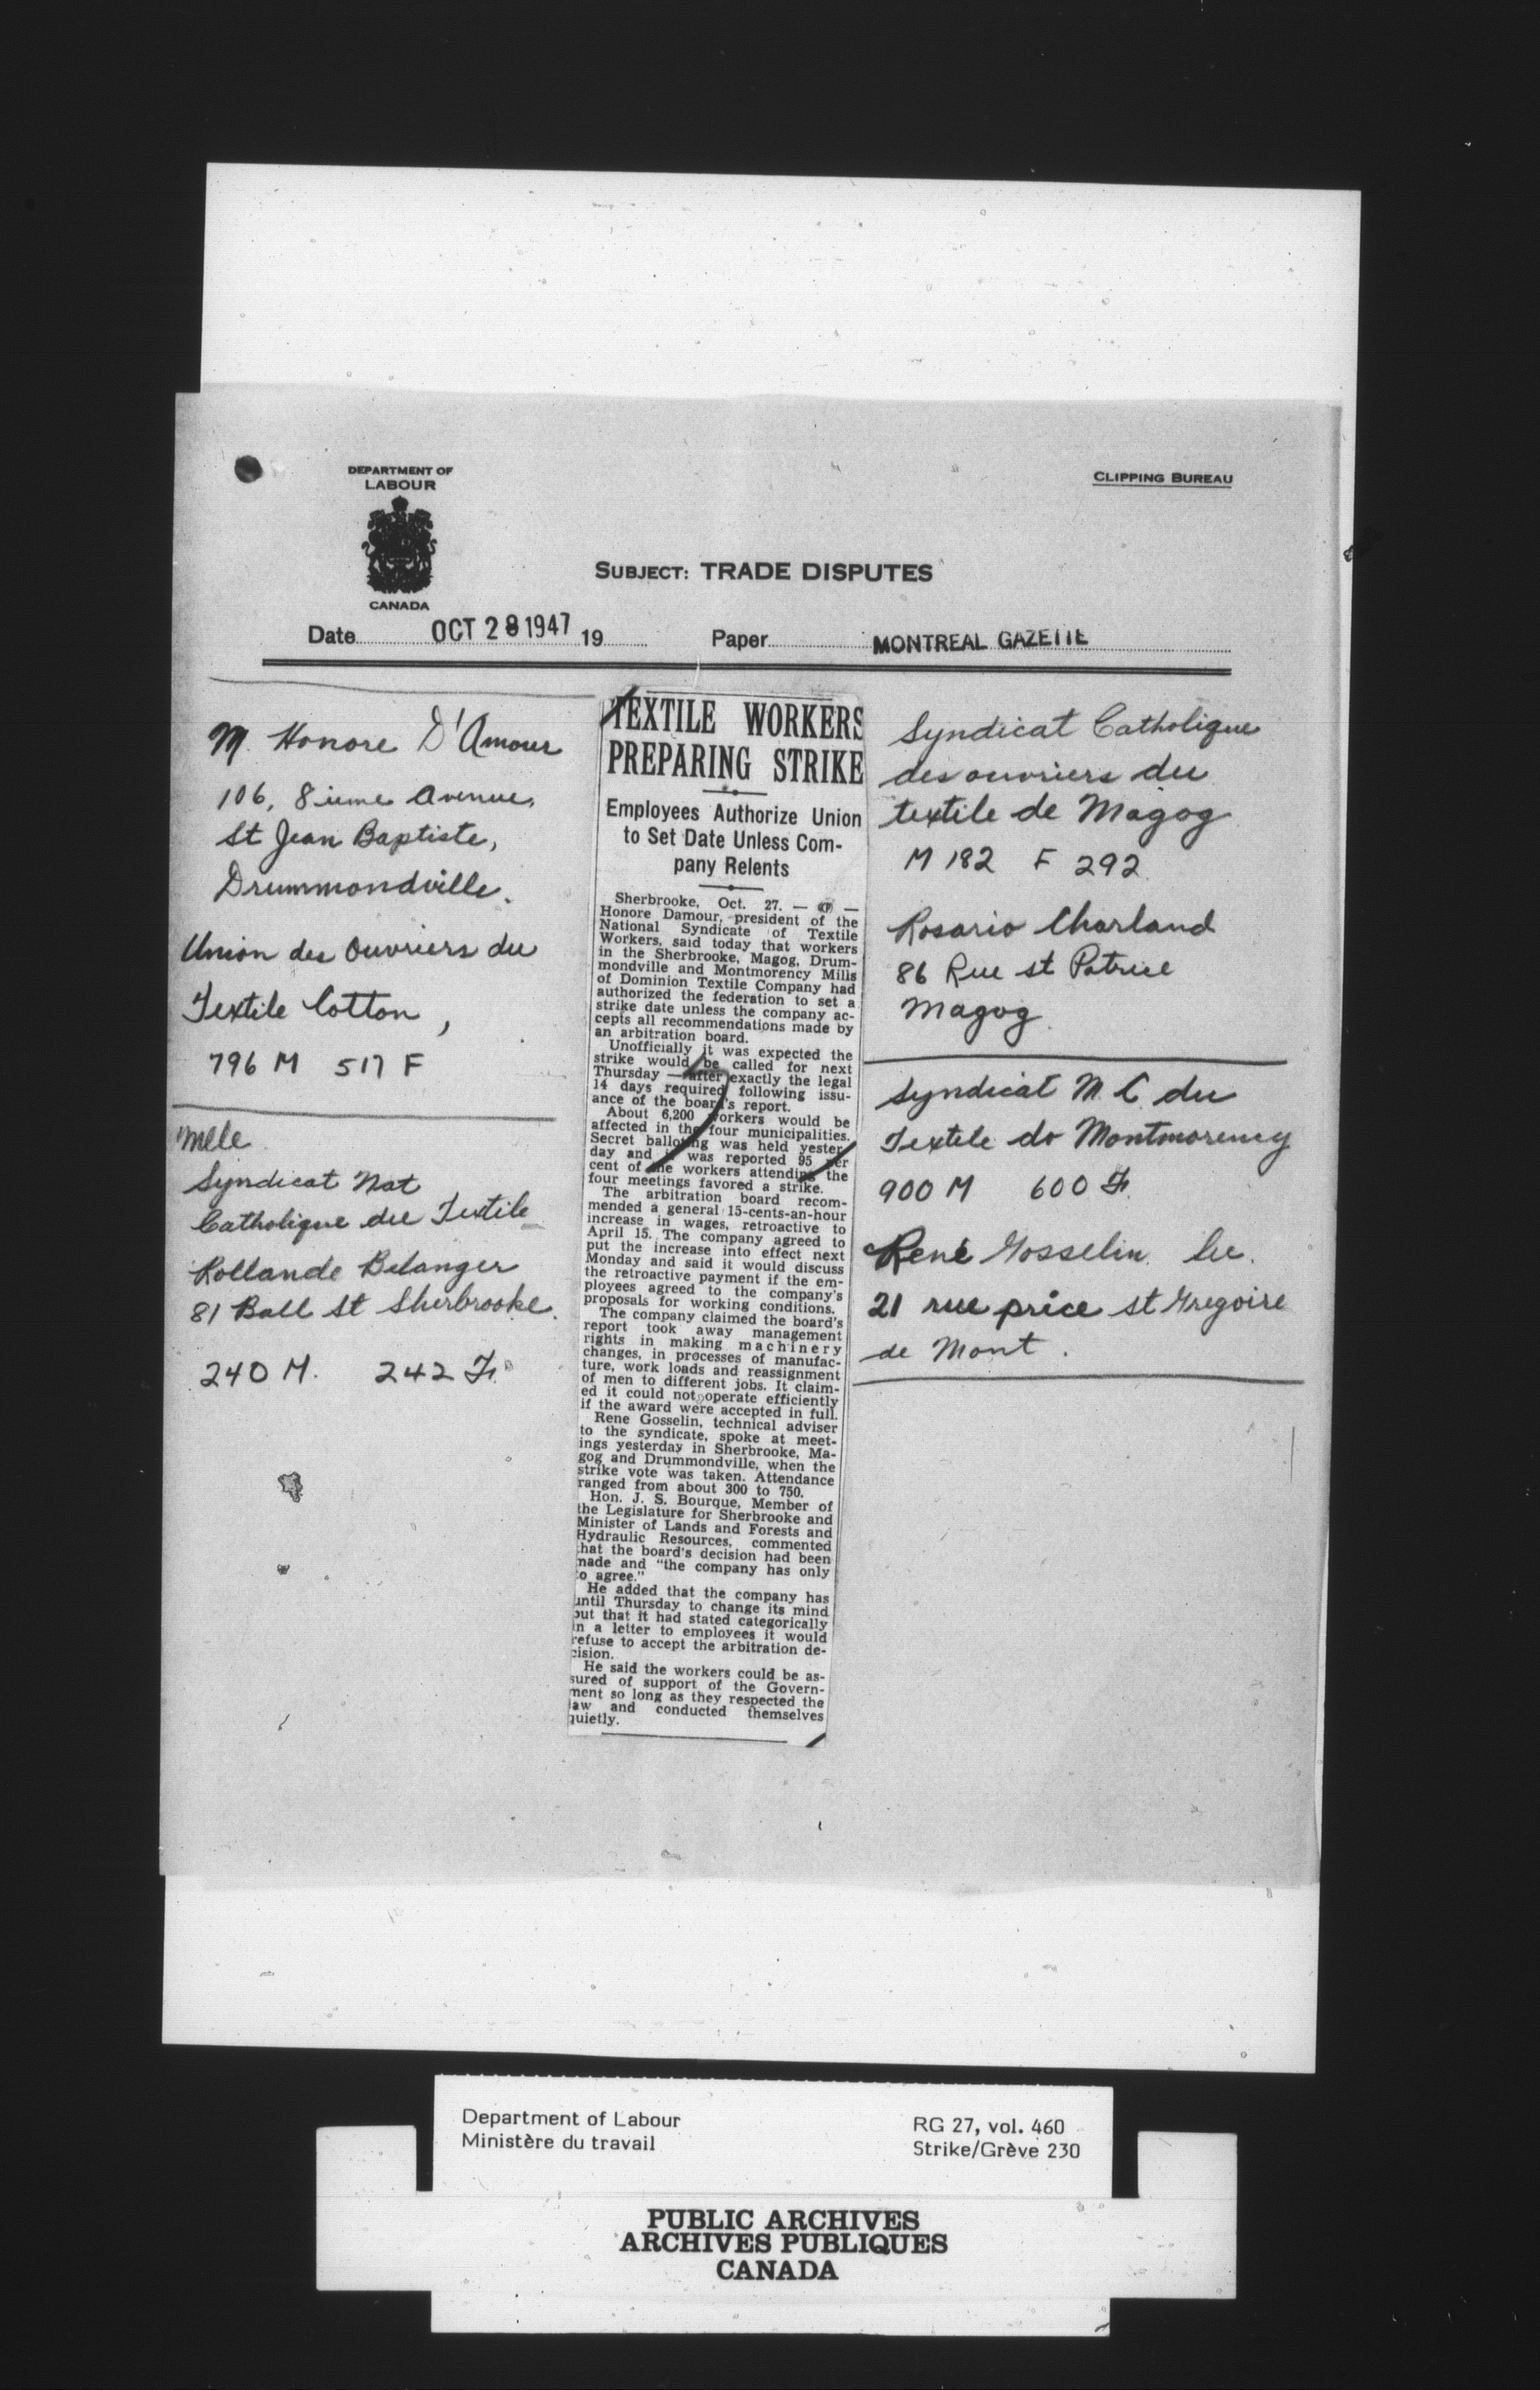 DEPARTMENT OF
LABOUR
CANADA
CLIPPING BUREAU
SUBJECT: TRADE DISPUTES
Date OCT 28 1947 19 Paper MONTREAL GAZETTE
M Honore D'Amour
106, 8ieme Avenue,
St Jean Baptiste,
Drummondville.
Union des Ouvriers du
Textile Cotton,
796 M 517 F
Mlle
Syndicat Nat
Catholique du Textile
Rollande Belanger
81 Ball St Sherbrooke.
240 M. 242 F.
TEXTILE WORKERS
PREPARING STRIKE
Employees Authorize Union
to Set Date Unless Com-
pany Relents
Sherbrooke, Oct. 27. — —
Honore Damour, president of the
National Syndicate of Textile
Workers, said today that workers
in the Sherbrooke, Magog, Drum-
mondville and Montmorency Mills
of Dominion Textile Company had
authorized the federation to set a
strike date unless the company ac-
cepts all recommendations made by
an arbitration board.
Unofficially it was expected the
strike would be called for next
Thursday — after exactly the legal
14 days required following issu-
ance of the board's report.
About 6,200 workers would be
affected in the four municipalities.
Secret balloting was held yester-
day and it was reported 95 per
cent of the workers attending the
four meetings favored a strike.
The arbitration board recom-
mended a general 15-cents-an-hour
increase in wages, retroactive to
April 15. The company agreed to
put the increase into effect next
Monday and said it would discuss
the retroactive payment if the em-
ployees agreed to the company's
proposals for working conditions.
The company claimed the board's
report took away management
rights in making machinery
changes, in processes of manufac-
ture, work loads and reassignment
of men to different jobs. It claim-
ed it could not operate efficiently
if the award were accepted in full.
Rene Gosselin, technical adviser
to the syndicate, spoke at meet-
ings yesterday in Sherbrooke, Ma-
gog and Drummondville, when the
strike vote was taken. Attendance
ranged from about 300 to 750.
Hon. J. S. Bourque, Member of
the Legislature for Sherbrooke and
Minister of Lands and Forests and
Hydraulic Resources, commented
that the board's decision had been
made and "the company has only
to agree."
He added that the company has
until Thursday to change its mind
but that it had stated categorically
in a letter to employees it would
refuse to accept the arbitration de-
cision.
He said the workers could be as-
sured of support of the Govern-
ment so long as they respected the
law and conducted themselves
quietly.
Syndicat Catholique
des ouvriers du
textile de Magog
M 182 F 292
Rosario Charland
86 Rue st Patrice
Magog
Syndicat M. C. du
Textile do Montmorency
900 M 600 F.
René Gosselin
21 rue price st Gregoire
de Mont.
Department of Labour
Ministère du travail
RG 27, vol. 460
Strike/Grève 230
PUBLIC ARCHIVES
ARCHIVES PUBLIQUES
CANADA